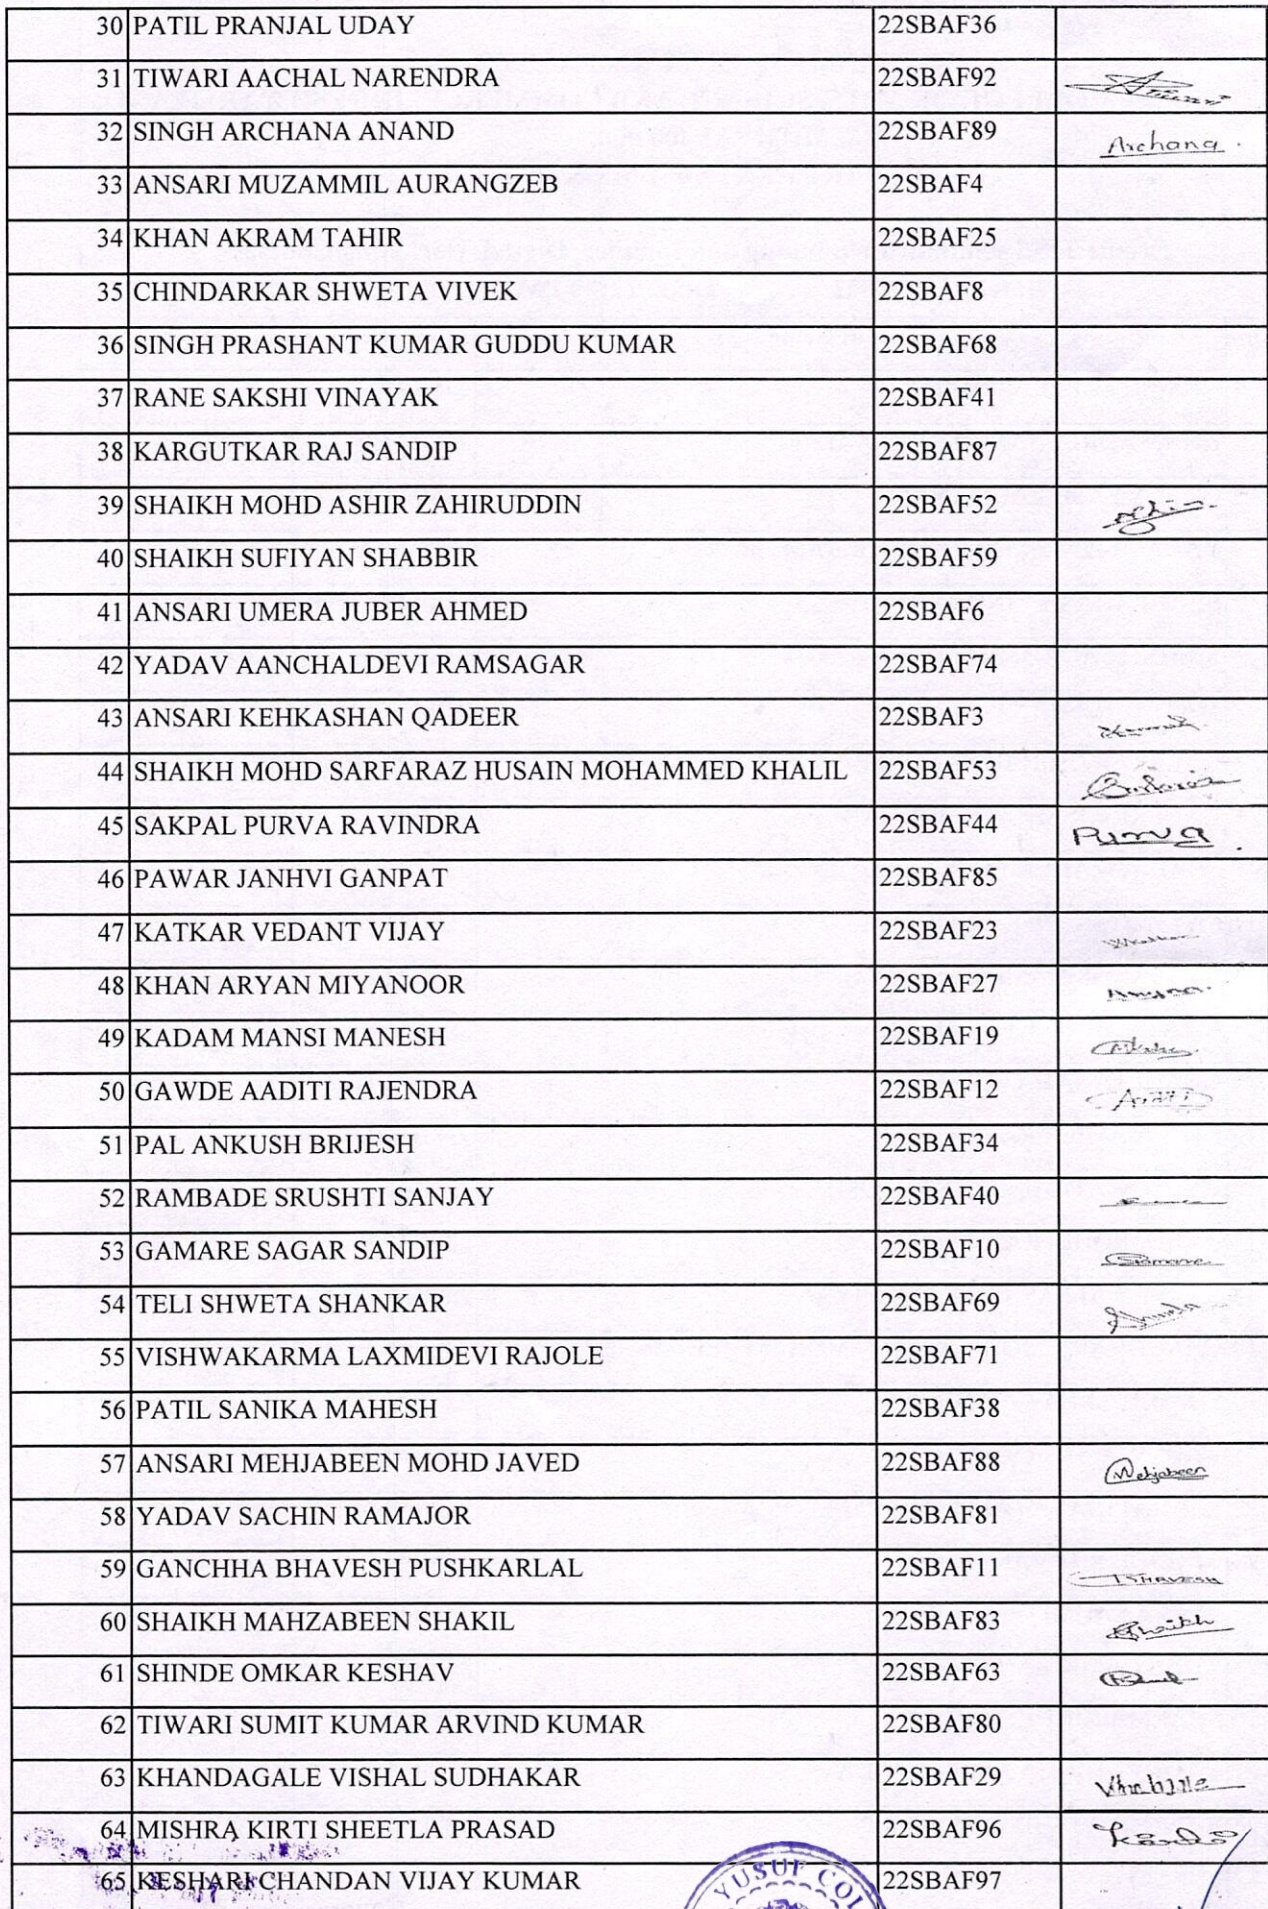 30 PATIL PRANJAL UDAY 22SBAF36
31 TIWARI AACHAL NARENDRA 22SBAF92
32 SINGH ARCHANA ANAND 22SBAF89 Archana.
33 ANSARI MUZAMMIL AURANGZEB 22SBAF4
34 KHAN AKRAM TAHIR 22SBAF25
35 CHINDARKAR SHWETA VIVEK 22SBAF8
36 SINGH PRASHANT KUMAR GUDDU KUMAR 22SBAF68
37 RANE SAKSHI VINAYAK 22SBAF41
38 KARGUTKAR RAJ SANDIP 22SBAF87
39 SHAIKH MOHD ASHIR ZAHIRUDDIN 22SBAF52
40 SHAIKH SUFIYAN SHABBIR 22SBAF59
41 ANSARI UMERA JUBER AHMED 22SBAF6
42 YADAV AANCHALDEVI RAMSAGAR 22SBAF74
43 ANSARI KEHKASHAN QADEER 22SBAF3
44 SHAIKH MOHD SARFARAZ HUSAIN MOHAMMED KHALIL 22SBAF53
45 SAKPAL PURVA RAVINDRA 22SBAF44 Purva.
46 PAWAR JANHVI GANPAT 22SBAF85
47 KATKAR VEDANT VIJAY 22SBAF23
48 KHAN ARYAN MIYANOOR 22SBAF27
49 KADAM MANSI MANESH 22SBAF19
50 GAWDE AADITI RAJENDRA 22SBAF12
51 PAL ANKUSH BRIJESH 22SBAF34
52 RAMBADE SRUSHTI SANJAY 22SBAF40
53 GAMARE SAGAR SANDIP 22SBAF10 Gamare
54 TELI SHWETA SHANKAR 22SBAF69
55 VISHWAKARMA LAXMIDEVI RAJOLE 22SBAF71
56 PATIL SANIKA MAHESH 22SBAF38
57 ANSARI MEHJABEEN MOHD JAVED 22SBAF88 Mehjabeen
58 YADAV SACHIN RAMAJOR 22SBAF81
59 GANCHHA BHAVESH PUSHKARLAL 22SBAF11 BHAVESH
60 SHAIKH MAHZABEEN SHAKIL 22SBAF83 Shaikh
61 SHINDE OMKAR KESHAV 22SBAF63
62 TIWARI SUMIT KUMAR ARVIND KUMAR 22SBAF80
63 KHANDAGALE VISHAL SUDHAKAR 22SBAF29
64 MISHRA KIRTI SHEETLA PRASAD 22SBAF96
65 KESHARI CHANDAN VIJAY KUMAR 22SBAF97
YUSUF COL